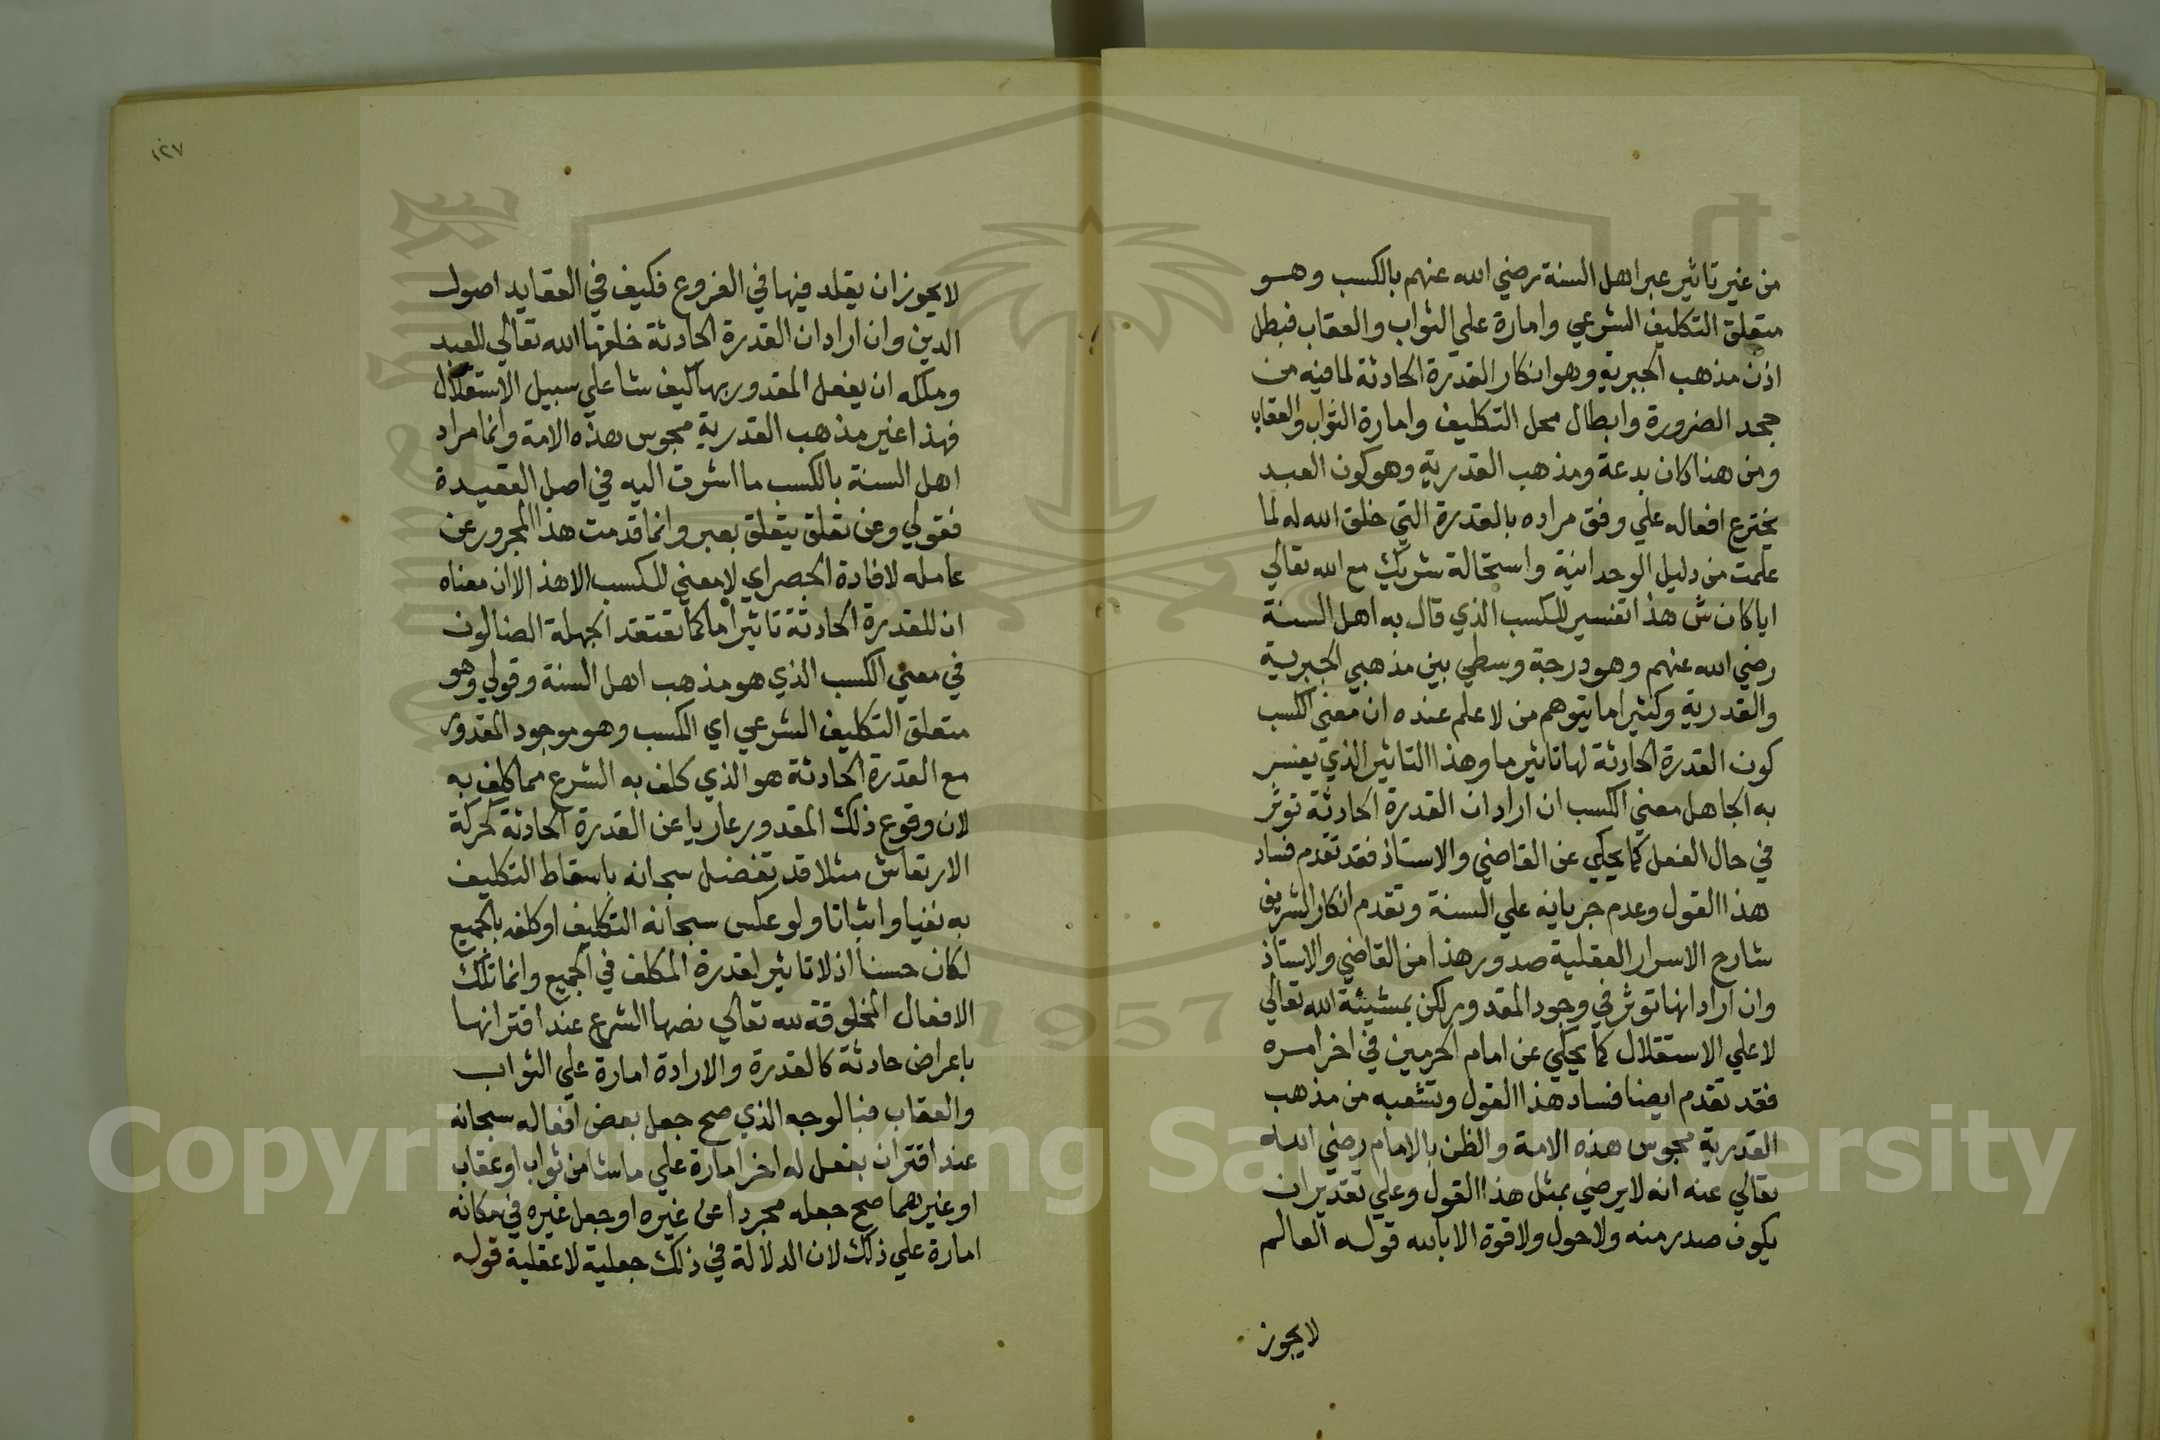 من غير تاثير عبر اهل السنة رضي الله عنهم بالكسب وهو
متعلق التكليف الشرعي وامارة علي الثواب والعقاب فبطل
اذن مذهب الجبرية وهو انكار القدرة الحادثة لما فيه من
جحد الضرورة وابطال محل التكليف وامارة الثواب والعقاب
ومن هنا كان بدعة ومذهب القدرية وهو كون العبد
يخترع افعاله علي وفق مراده بالقدرة التي خلق الله له لما
علمت من دليل الوحدانية واستحالة شريك مع الله تعالي
ايا كان ش هذا تفسير للكسب الذي قال به اهل السنة
رضي الله عنهم وهو درجة وسطي بين مذهبي الجبرية
والقدرية وكثيرا ما يتوهم من لا علم عنده ان معني الكسب
كون القدرة الحادثة لها تاثير ما وهذا التاثير الذي يفسر
به الجاهل معني الكسب ان اراد ان القدرة الحادثة توثر
في حال الفعل كما يحكي عن القاضي والاستاذ فقد تقدم فساد
هذا القول وعدم جريانه علي السنة وتقدم انكار الشريف
شارح الاسرار العقلية صدور هذا من القاضي والاستاذ
وان اراد انها توثر في وجود المقدور لكن بمشيئة الله تعالي
لا علي الاستقلال كما يحكي عن امام الحرمين في اخر امره
فقد تقدم ايضا فساد هذا القول وتشعبه من مذهب
القدرية مجوس هذه الامة والظن بالامام رضي الله
تعالي عنه انه لا يرضي بمثل هذا القول وعلي تقدير ان
يكون صدر منه ولا حول ولا قوة الا بالله قوله العالم
لا يجوز
١٢٧
لا يجوز ان يقلد فيها في الفروع فكيف في العقايد اصول
الدين وان اراد ان القدرة الحادثة خلقها الله تعالي للعبد
وملكه ان يفعل المقدور بها كيف شا علي سبيل الاستقلال
فهذا عين مذهب القدرية مجوس هذه الامة وانما مراد
اهل السنة بالكسب ما اشرت اليه في اصل العقيدة
فقولي وعن تعلق يتعلق بعبر وانما قدمت هذا المجرور عن
عامله لافادة الحصر اي لا معني للكسب الا هذا لا ان معناه
ان للقدرة الحادثة تاثيرا ما كما تعتقد الجهلة الضالون
في معني الكسب الذي هو مذهب اهل السنة وقولي وهو
متعلق التكليف الشرعي اي الكسب وهو موجود المقدور
مع القدرة الحادثة هو الذي كلف به الشرع مما كلف به
لان وقوع ذلك المقدور عاريا عن القدرة الحادثة كحركة
الارتعاش مثلا قد تفضل سبحانه باسقاط التكليف
به نفيا واثباتا ولو عكس سبحانه التكليف او كلف بالجميع
لكان حسنا اذ لا تاثير لقدرة المكلف في الجميع وانما تلك
الافعال المخلوقة لله تعالي نصبها الشرع عند اقترانها
باعراض حادثة كالقدرة والارادة امارة علي الثواب
والعقاب فبالوجه الذي صح جعل بعض افعاله سبحانه
عند اقتران بفعل له اخر امارة علي ما شا من ثواب او عقاب
او غيرهما صح جعله مجردا عن غيره او جعل غيره في مكانه
امارة علي ذلك لان الدلالة في ذلك جعلية لا عقلية قوله
Copyright © King Saud University
1957